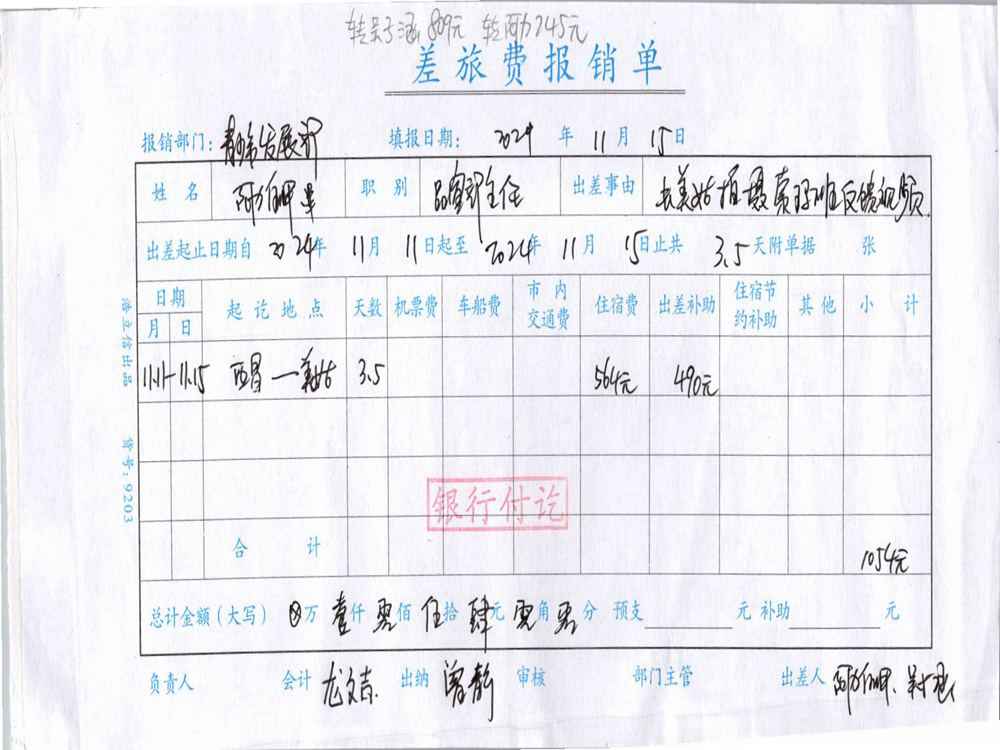 转吴子涵809元 转阿力245元
差旅费报销单
报销部门: 发展部 填报日期: 2024 年 11 月 15 日
姓名 阿力 职别 主任 出差事由 去美姑拍摄 班反馈视频
出差起止日期自 2024年 11月 11日起至 2024年 11月 15日止共 3.5 天附单据 张
日期 起讫地点 天数 机票费 车船费 市内交通费 住宿费 出差补助 住宿节约补助 其他 小计
月 日
11.11-11.15 西昌—美姑 3.5 564元 490元
银行付讫
合计 1054元
总计金额(大写) ⊗万 壹仟 零佰 伍拾 肆元 零角 零分 预支 元 补助 元
负责人 会计 龙文志 出纳 曾静 审核 部门主管 出差人 阿力
浩立信出品 货号:9203